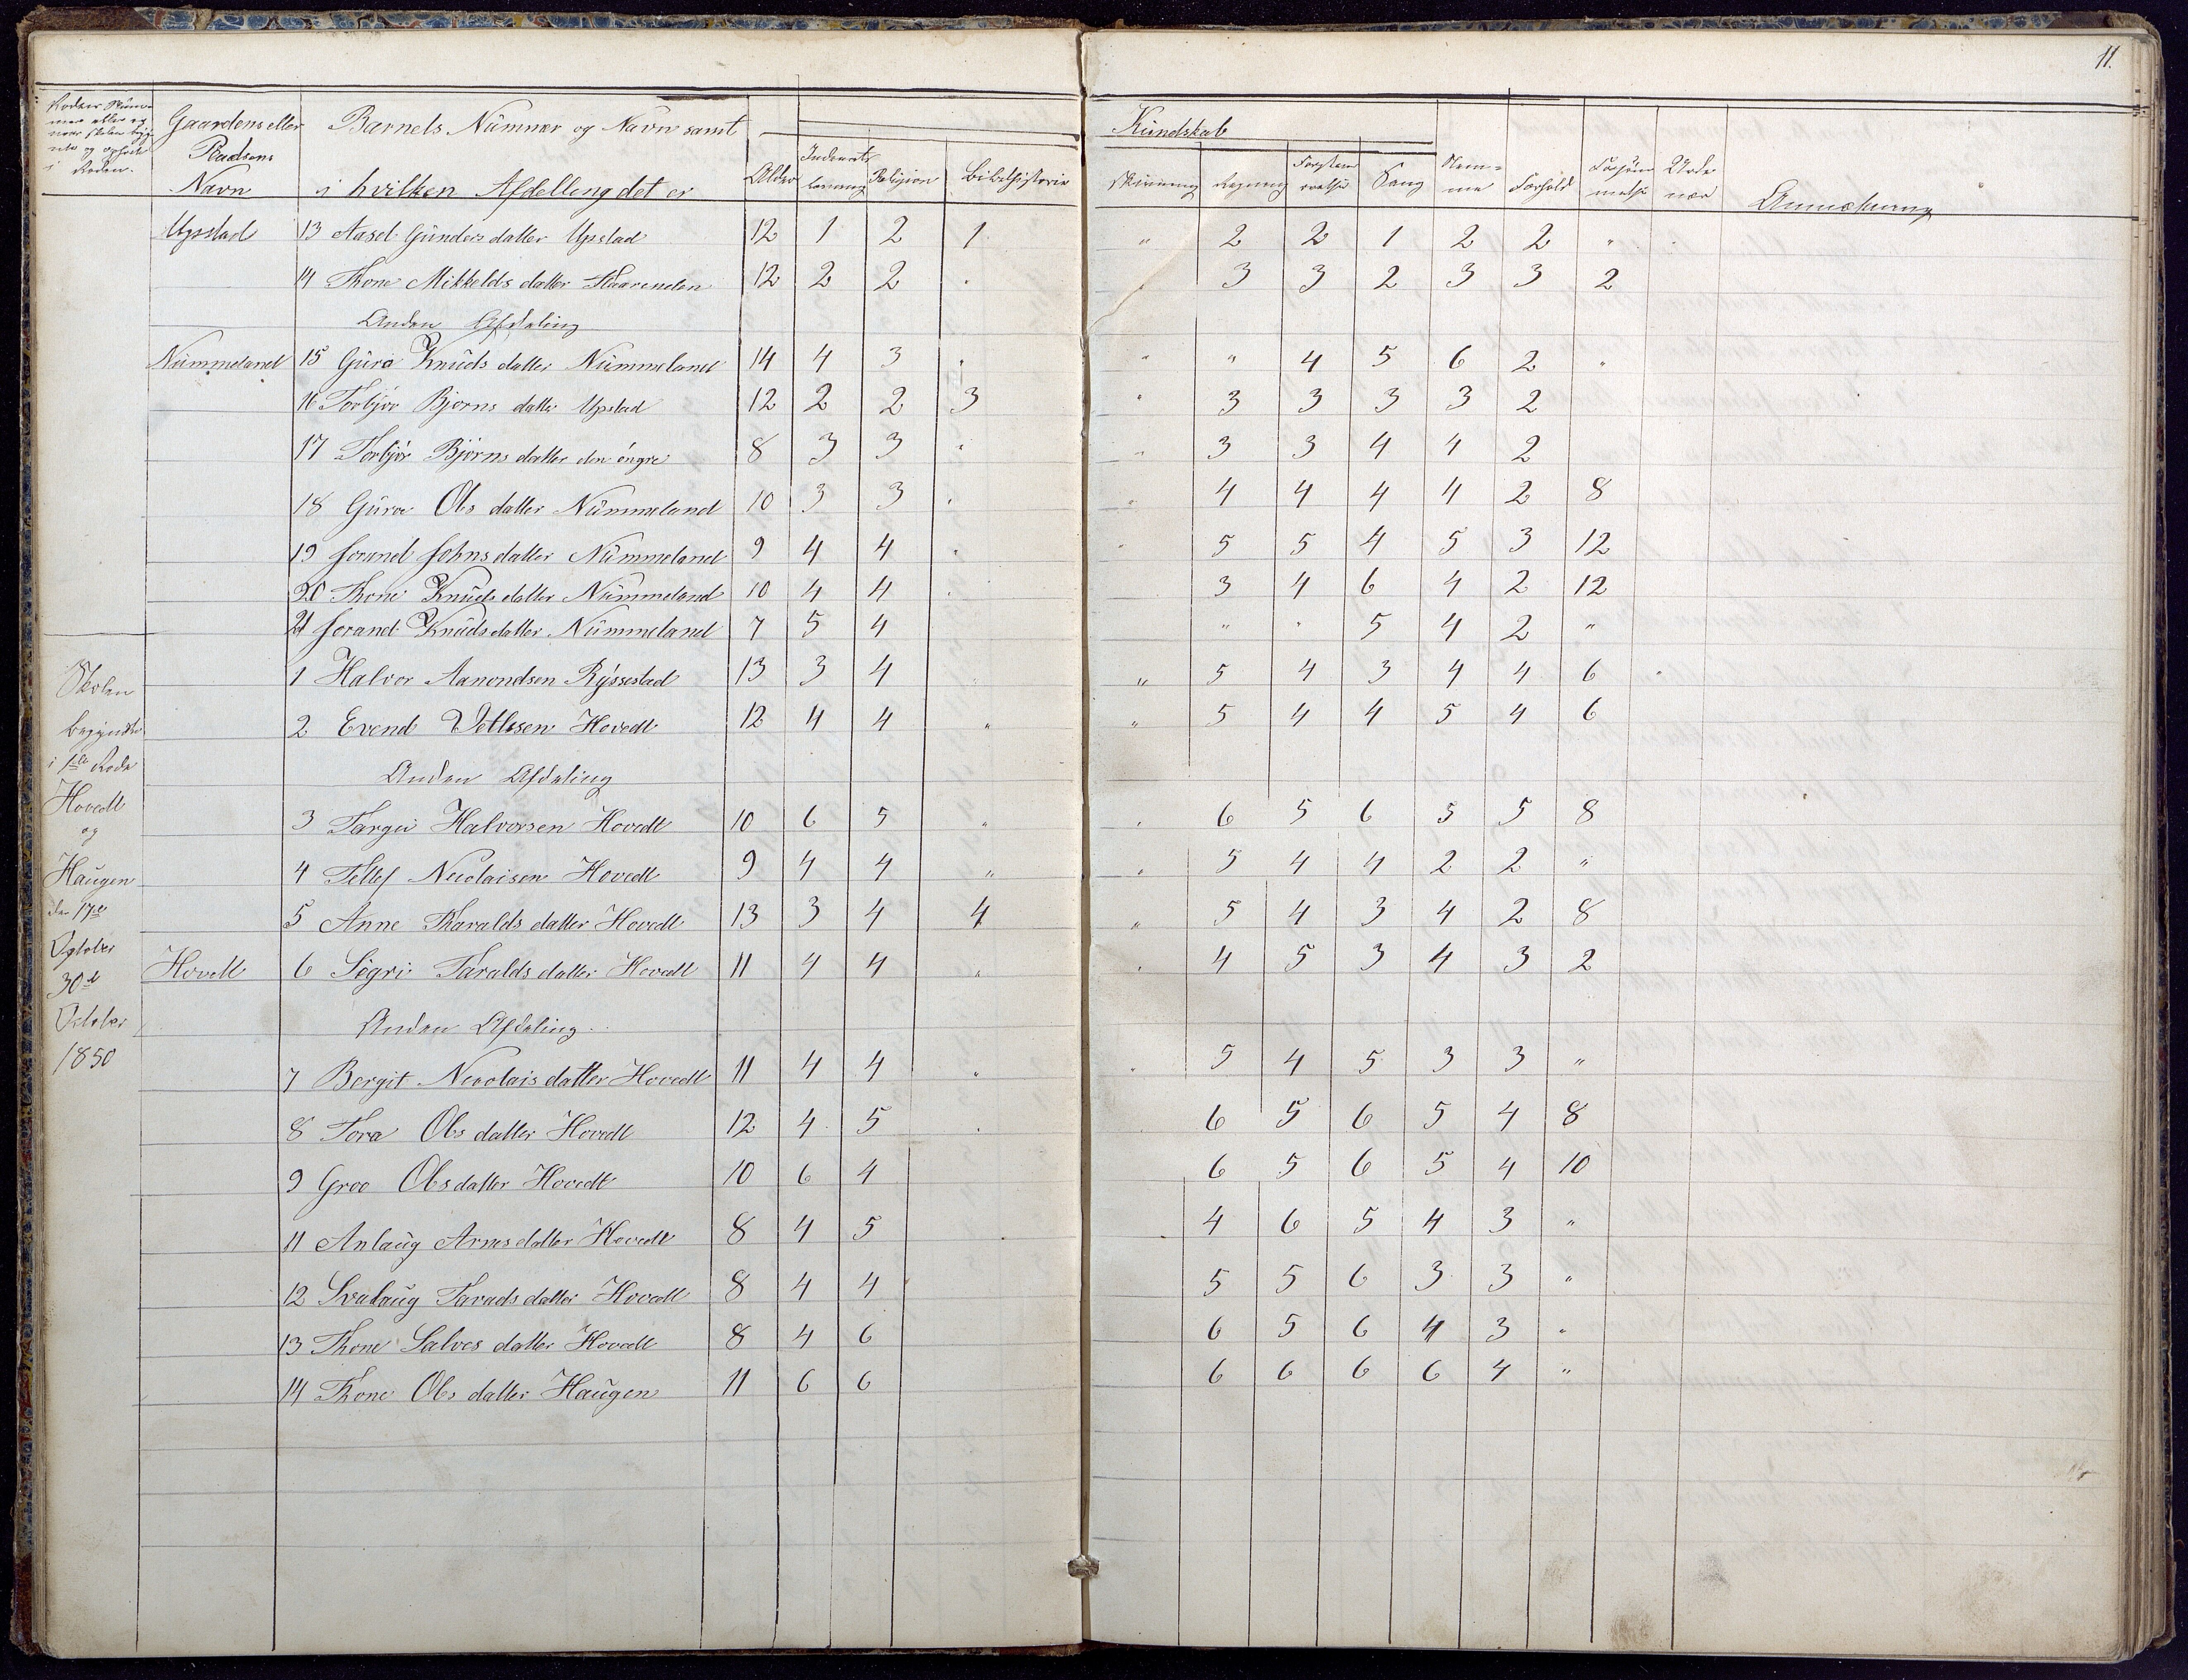 11.
Gaardens eller Pladsens Navn
Barnets Nummer og Navn samt i hvilken Afdelleng det er
Alder
Religion
Bibelhistorie
Kundskab
Skrivning
Regning
Sang
Nemme
Forhold
Anmerkning
Upstad 13 Aasel Gunders datter Upstad 12 1 2 1 " 2 2 1 2 2 "
14 Thone Mikkelds datter 12 2 2 " 3 3 2 3 3 2
Anden Afdeling
Nummeland 15 Guro Knuds datter Nummeland 14 4 3 " " " 4 5 6 2 "
16 Torbjør Bjorns datter Upstad 12 2 2 3 " 3 3 3 3 2
17 Torbjør Bjørns datter den öngre 8 3 3 " " 3 3 4 4 2
18 Guro Ols datter Nummeland 10 3 3 " " 4 4 4 4 2 8
19 Jorand Johns datter Nummeland 9 4 4 " " 5 5 4 5 3 12
20 Thone Knuds datter Nummeland 10 4 4 " 3 4 6 4 2 12
21 Jorand Knuds datter Nummeland 7 5 4 " " 5 4 2 "
1 Halvor Aanondsen Ryssestad 13 3 4 " 5 4 3 4 4 6
2 Evend Vetlesen Hovedt 12 4 4 " " 5 4 4 5 4 6
Anden Afdeling
3 Targei Halvorsen Hovedt 10 6 5 " " 6 5 6 5 5 8
4 Tellef Nicolaisen Hovedt 9 4 4 " " 5 4 4 2 2 "
5 Anne Tharalds datter Hovedt 13 3 4 4 " 5 4 3 4 2 8
Hovedt 6 Sigri Taralds datter Hovedt 11 4 4 " " 4 5 3 4 3 2
Anden Afdeling
7 Bergit Nicolais datter Hovedt 11 4 4 " " 5 4 5 3 3 "
8 Tora Ols datter Hovedt 12 4 5 " 6 5 6 5 4 8
9 Groo Ols datter Hovedt 10 6 4 6 5 6 5 4 10
11 Anlaug Arnes datter Hovedt 8 4 5 4 6 5 4 3 "
12 Svalaug Tarads datter Hovedt 8 4 4 5 5 6 3 3 "
13 Thone Salves datter Hovedt 8 4 6 6 5 6 4 3 "
14 Thone Ols datter Haugen 11 6 6 6 6 6 6 4 "
Skolen
begyndte
i 1ste Rode
Hovedt
og
Haugen
den 17de
October
30te
October
1850